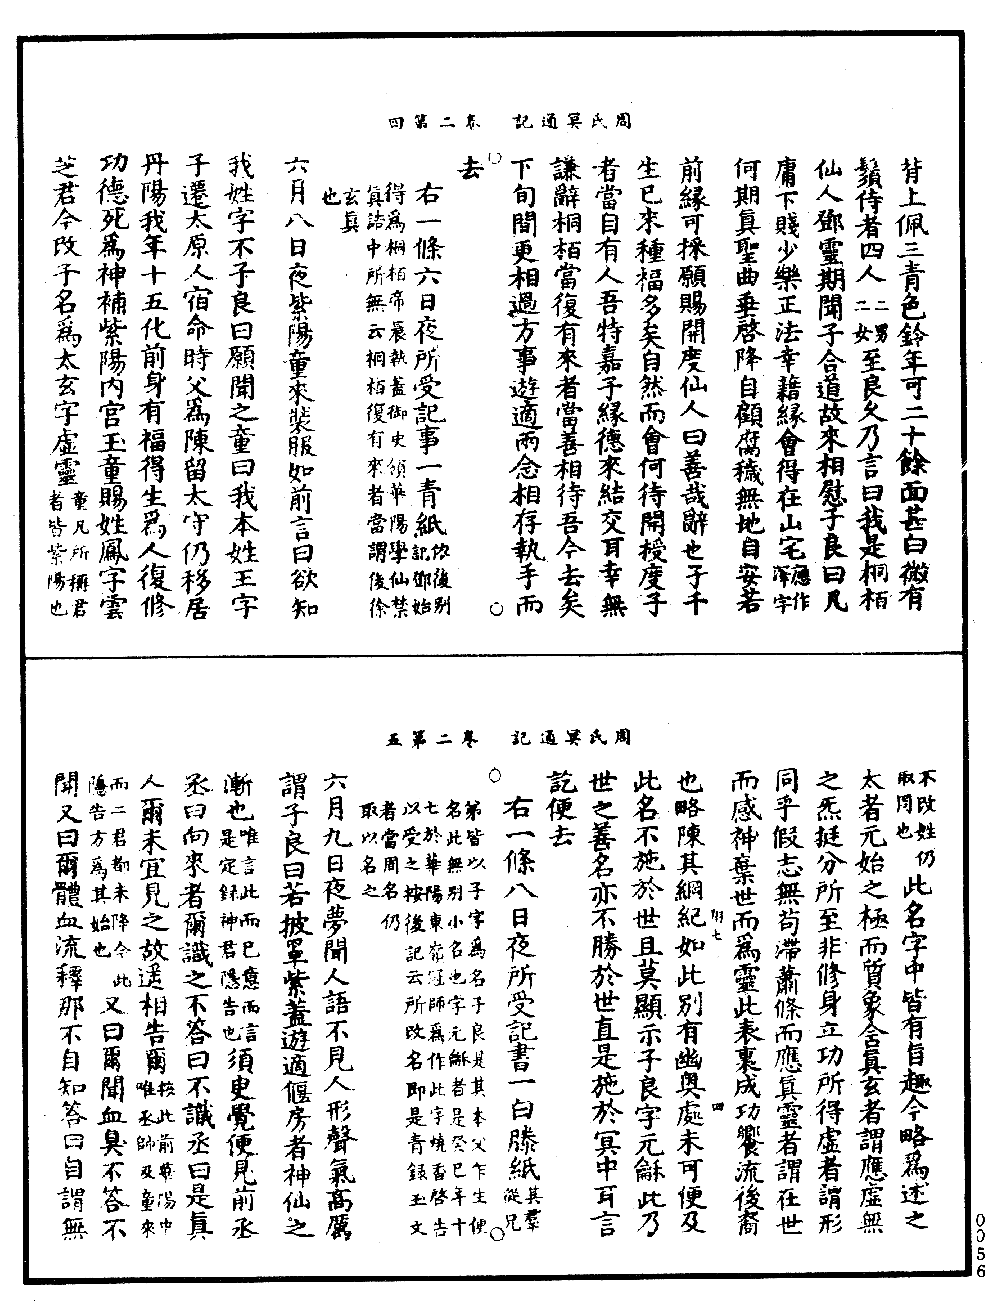 周氏冥通記　卷二第四
背上佩三青色鈴年可二十餘面甚白微有
鬚侍者四人二男二女至良久乃言曰我是桐栢
仙人鄧靈期聞子合道故來相慰子良曰凡
庸下賤少樂正法幸藉緣會得在山宅應作澤字
何期真聖曲垂啓降自顧腐穢無地自安若
前緣可採願賜開度仙人曰善哉辭也子千
生已來種福多矣自然而會何待開授度子
者當自有人吾特嘉子緣德來結交耳幸無
謙辭桐栢當復有來者當善相待吾今去矣
下旬間更相過方事遊適兩念相存執手而
去
右一條六日夜所受記事一青紙依後別記鄧始
得爲桐栢帝裒執蓋御史領華陽學仙禁
真誥中所無云桐栢復有來者當謂後徐
玄真
也
六月八日夜紫陽童來裝服如前言曰欲知
我姓字不子良曰願聞之童曰我本姓王字
子遷太原人宿命時父爲陳留太守仍移居
丹陽我年十五化前身有福得生爲人復修
功德死爲神補紫陽内宮玉童賜姓鳳字雲
芝君今改子名爲太玄字虛靈童凡所稱君者皆紫陽也
周氏冥通記　卷二第五
不改姓仍取周也此名字中皆有旨趣今略爲述之
太者元始之極而質象含真玄者謂應虛無
之炁挺分所至非修身立功所得虛者謂形
同乎假志無苟滯蕭條而應真靈者謂在世
而感神棄世而爲靈此表裏成功饗流後裔
也略陳其綱紀如此別有幽奧處未可便及
此名不施於世且莫顯示子良字元龢此乃
世之善名亦不勝於世直是施於冥中耳言
訖便去
右一條八日夜所受記書一白縢紙其羣從兄
弟皆以子字爲名子良是其本父作生便
名此無別小名也字元龢者是癸巳年十
七於華陽東嶺冠師爲作此字燒香啓告
以受之按後記云所改名即是青録玉文
者當周名仍
取以名之
六月九日夜夢聞人語不見人形聲氣高厲
謂子良曰若披罩紫蓋遊適偃房者神仙之
漸也唯言此而已意而言是定録神君隱告也須臾覺便見前丞
丞曰向來者爾識之不答曰不識丞曰是真
人爾未宜見之故遥相告爾按此前華陽中唯丞師及童來
而二君都未降今此隱告方爲其始也又曰爾聞血臭不答不
聞又曰爾體血流釋那不自知答曰自謂無
附七
四
0056